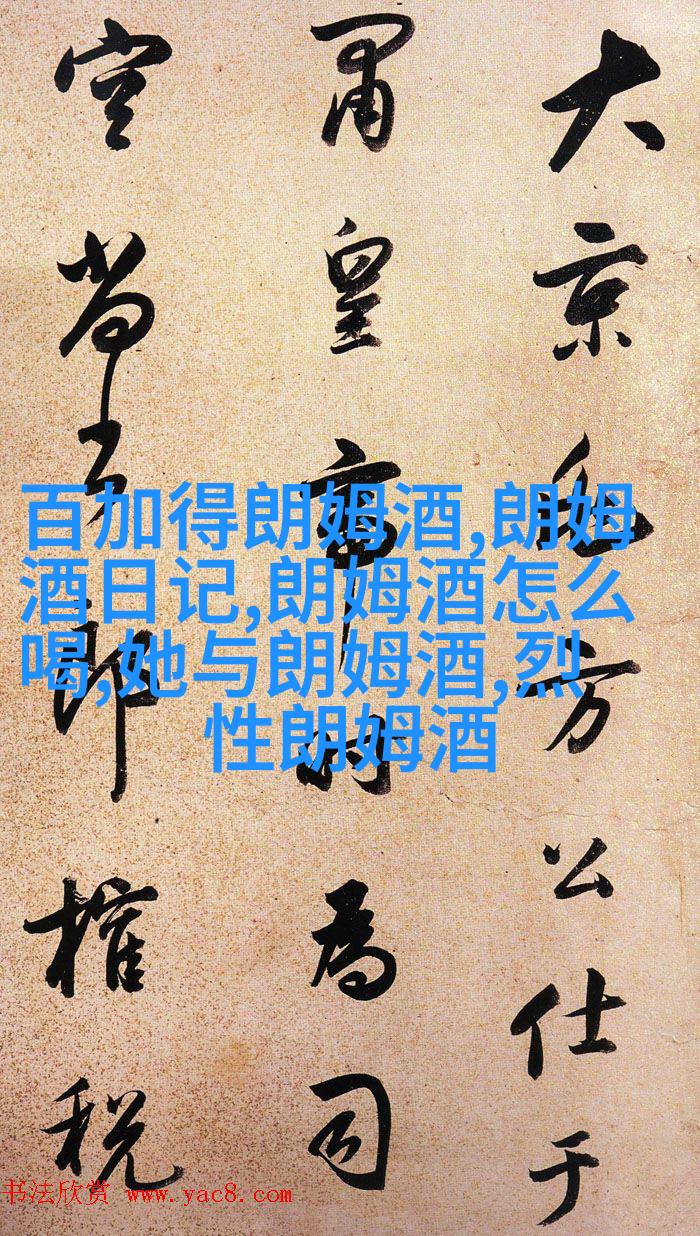 大京兆方公仕于
肅皇帝時為司
空尚書郎榷税
百加得朗姆酒,朗姆
酒日记,朗姆酒怎么
喝,她与朗姆酒,烈
性朗姆酒
书法欣赏 www.yac8.com